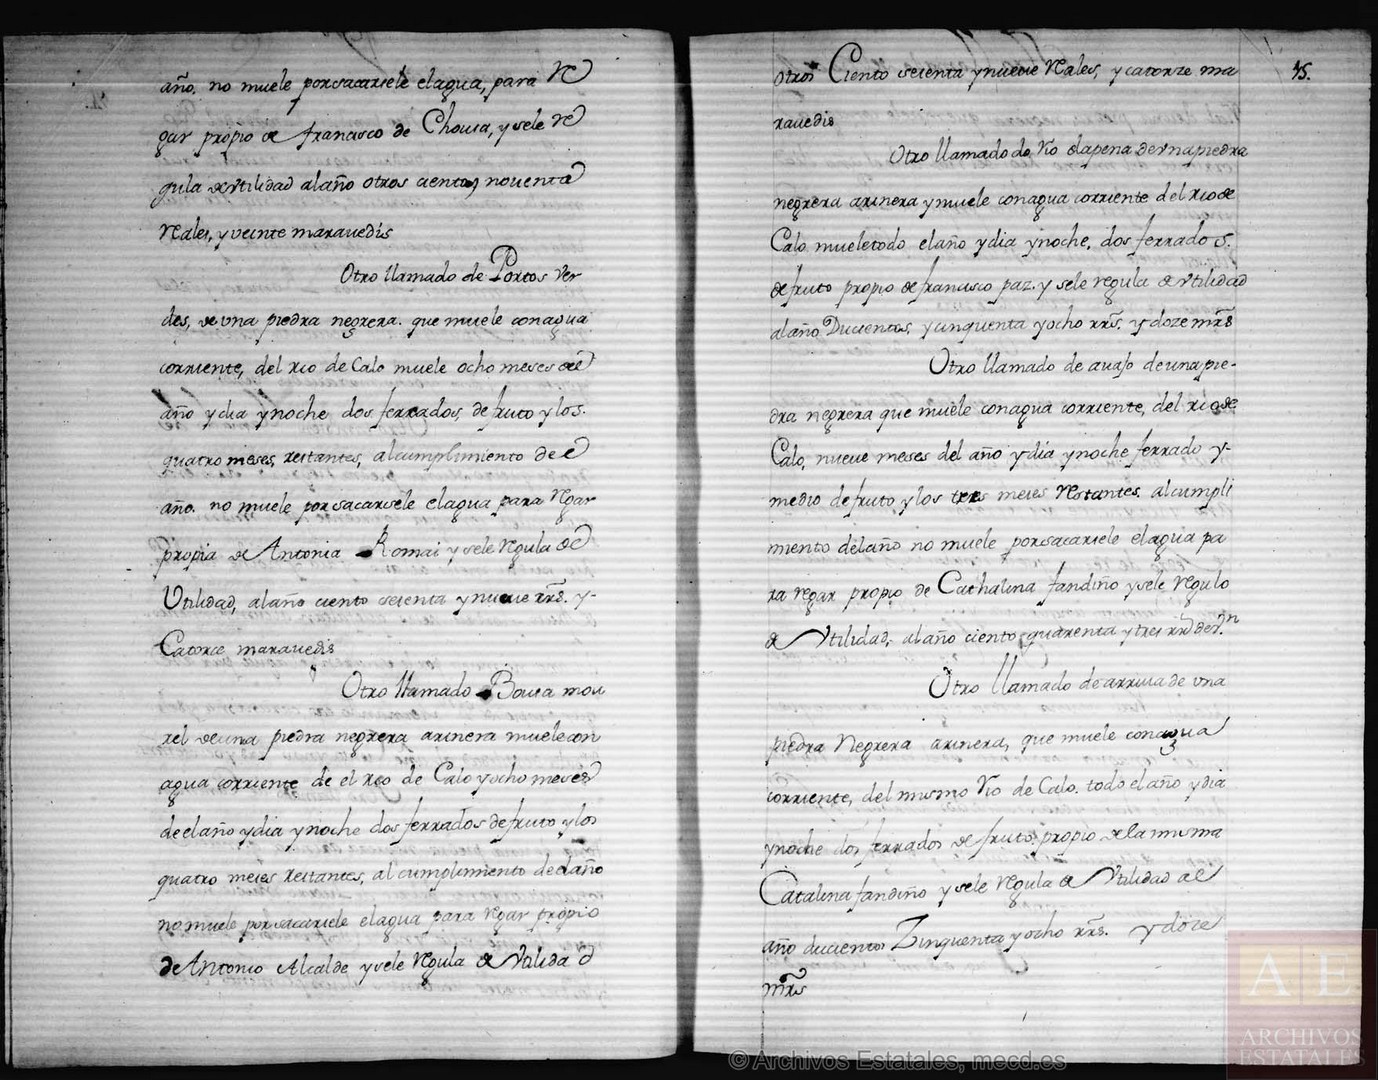 año, no muele por sacarsele el agua, para Re
gar propio de francisco de Chouza, y sele re
gula de vtilidad al año otros ciento, y nouenta
Reales, y veinte marauedis
Otro llamado de Portos Ver
des, de vna piedra negrera. que muele con agua
corriente, del rio de Calo muele ocho meses de el
año y dia y noche dos ferrados, de fruto y los.
quatro meses, restantes, al cumplimiento de el
año. no muele por sacarsele el agua para Regar
propia de Antonia Romai y sele Regula de
Vtilidad, al año ciento setenta y nueue rrs. y-
Catorce marauedis
Otro llamado Bouza mou
rel de una piedra negrera arinera muele con
agua corriente de el rio de Calo y ocho meses
de el año y dia y noche dos ferrados de fruto y los
quatro meses restantes, al cumplimiento de el año
no muele por sacarsele el agua para regar propio
de Antonio Alcalde y sele Regula de Vtilidad
45.
otros Ciento setenta y nueue Reales, y catorze ma
rauedis
Otro llamado do rio da pena de vna piedra
negrera arinera y muele con agua corriente del rio de
Calo muele todo el año y dia y noche, dos ferrados.
de fruto propio de francisco paz. y sele regula de vtilidad
al año Ducientos, y cinquenta y ocho rrs. y doze mrs
Otro llamado de auajo de una pie-
dra negrera que muele con agua corriente, del rio de
Calo, nueue meses del año y dia y noche ferrado y-
medio de fruto y los tres meses Restantes. al cumpli
miento del año no muele por sacarsele el agua pa
ra regar propio de Cathalina fandiño y sele regulo
de Vtilidad, al año ciento quarenta y tres rrs de vn
Otro llamado de arriua de vna
piedra Negrera arinera, que muele con agua
corriente, del mismo Rio de Calo. todo el año y dia
y noche dos ferrados de fruto propio de la misma
Catalina fandiño y sele Regula de Vtilidad al
año ducientos Zinquenta y ocho rrs. y doze
mrs
© Archivos Estatales, mecd.es
AE
ARCHIVOS
ESTATALES